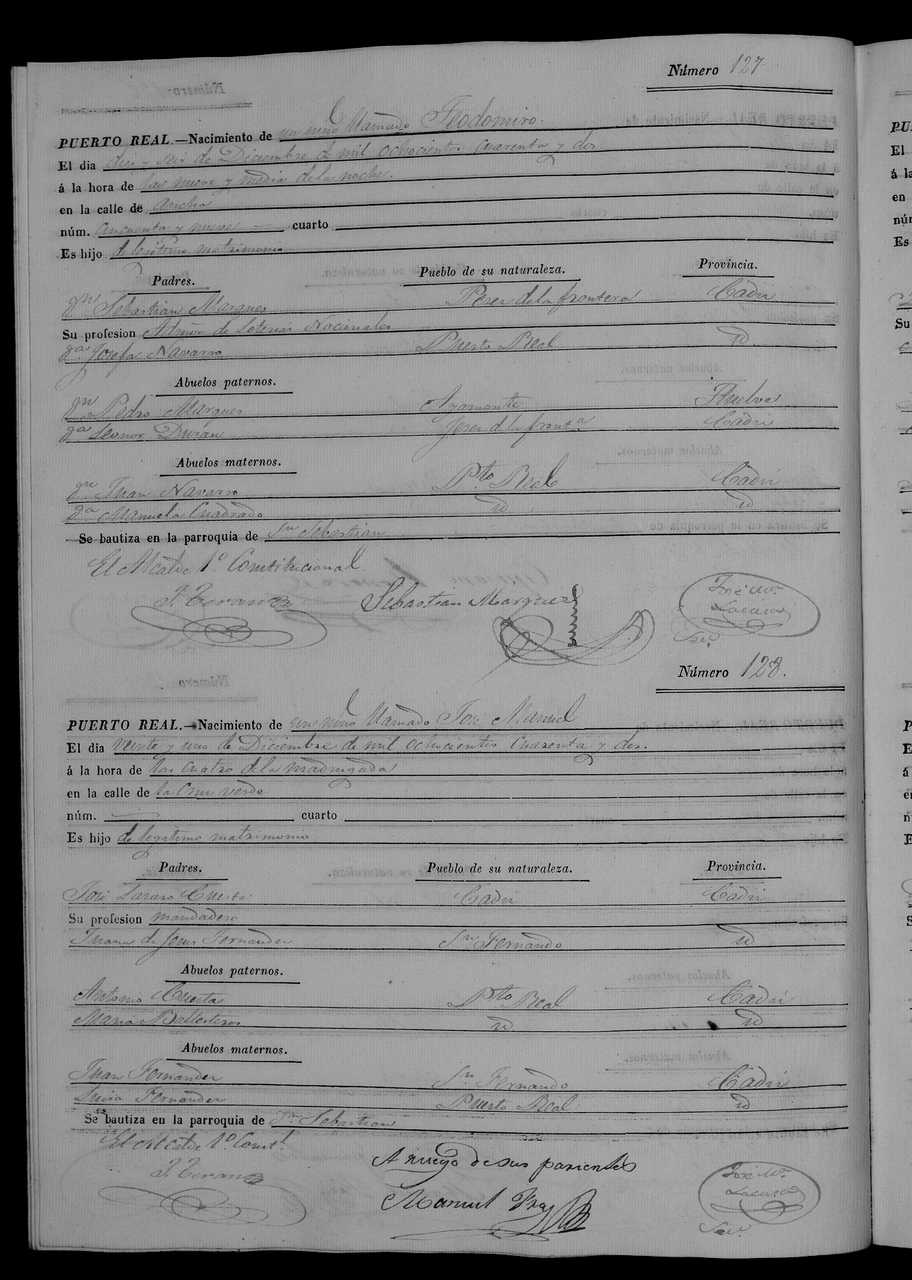 Número 127
PUERTO REAL.—Nacimiento de un niño llamado Teodomiro.
El dia diez y seis de Diciembre de mil ochocientos cuarenta y dos
á la hora de las nueve y media de la noche.
en la calle de ancha
núm. cincuenta y nueve cuarto
Es hijo de legitimo matrimonio
Padres. Pueblo de su naturaleza. Provincia.
Dn Sebastian Marquez Jerez de la frontera Cadiz
Su profesion Admor de Loterias Nacionales
Da Josefa Navarro Puerto Real id
Abuelos paternos.
Dn Pedro Marquez Ayamonte Huelva
Da Leonor Duran Jerez de la fronta Cadiz
Abuelos maternos.
Dn Juan Navarro Pto Real Cadiz
Da Manuela Cuadrado id id
Se bautiza en la parroquia de Sn Sebastian
El Alcalde 1o Constitucional
Sebastian Marquez
José Ma
Secro
Número 128.
PUERTO REAL.—Nacimiento de un niño llamado José Manuel
El dia veinte y uno de Diciembre de mil ochocientos cuarenta y dos.
á la hora de las cuatro de la madrugada
en la calle de la Cruz verde
núm. cuarto
Es hijo de legitimo matrimonio
Padres. Pueblo de su naturaleza. Provincia.
José Lazaro Cuesta Cadiz Cadiz
Su profesion mandadero
Juana de Jesus Fernandez Sn Fernando id
Abuelos paternos.
Antonio Cuesta Pto Real Cadiz
Maria Ballesteros id id
Abuelos maternos.
Juan Fernandez Sn Fernando Cadiz
Luisa Fernandez Puerto Real id
Se bautiza en la parroquia de Sn Sebastian
El Alcalde 1o Constl
A ruego de sus parientes
José Ma
Manuel
Secro